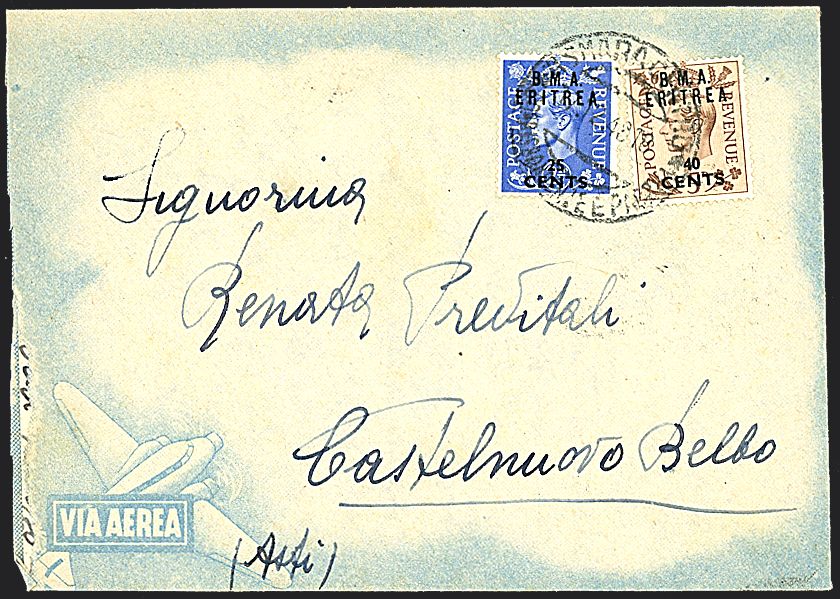 B.M.A.
ERITREA.
POSTAGE
REVENUE
25
CENTS.
B.M.A.
ERITREA.
POSTAGE
REVENUE
40
CENTS.
Signorina
Renata Previtali
Castelnuovo Belbo
(Asti)
VIA AEREA